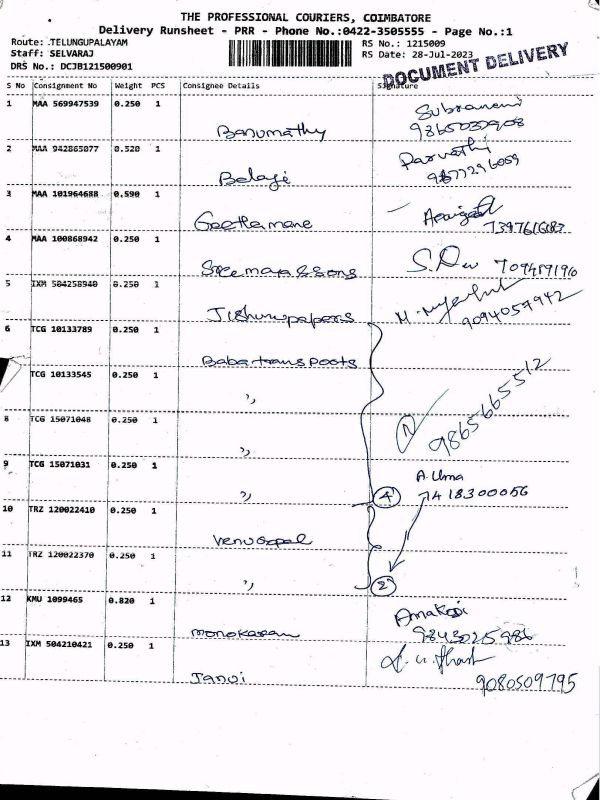 THE PROFESSIONAL COURIERS, COIMBATORE
Delivery Runsheet - PRR - Phone No.:0422-3505555 - Page No.:1
Route: .TELUNGUPALAYAM
RS No.: 1215009
Staff: SELVARAJ
RS Date: 28-Jul-2023
DRS No.: DCJB121500901
DOCUMENT DELIVERY
S No Consignment No Weight PCS Consignee Details Signature
1 MAA 569947539 0.250 1 Banumathy
2 MAA 942865077 0.520 1 Balaji Parvathi
9877296059
3 MAA 101964688 0.590 1 Geethamane
4 MAA 100868942 0.250 1 Sreemara & sons
5 IXM 504258940 0.250 1 Jishnu papers
9094057942
6 TCG 10133789 0.250 1 Baba transpoots
TCG 10133545 0.250 1 "
9865665512
8 TCG 15071048 0.250 1 "
9 TCG 15071031 0.250 1 " A. Uma
7418300056
4
10 TRZ 120022410 0.250 1 Venugopal
11 TRZ 120022370 0.250 1 "
2
12 KMU 1099465 0.820 1 monokaran
9843025986
13 IXM 504210421 0.250 1 Janvi
9080509795